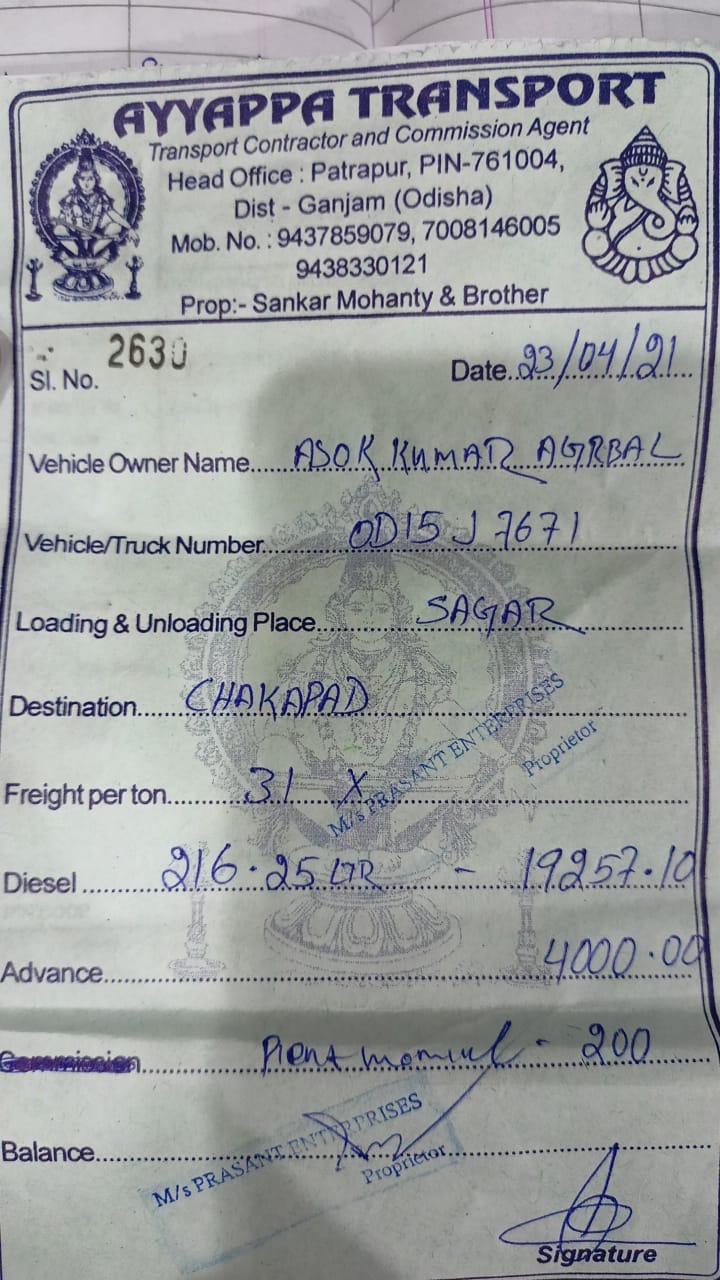 AYYAPPA TRANSPORT
Transport Contractor and Commission Agent
Head Office : Patrapur, PIN-761004,
Dist - Ganjam (Odisha)
Mob. No. : 9437859079, 7008146005
9438330121
Prop:- Sankar Mohanty & Brother
Sl. No. 2630 Date..23/04/21
Vehicle Owner Name......ASOK KUMAR AGRBAL
Vehicle/Truck Number......OD15 J 7671
Loading & Unloading Place......SAGAR
Destination......CHAKAPAD
M/s PRASANT ENTERPRISES
Proprietor
Freight per ton......31 X
Diesel ......216.25 LTR - 19257.10
Advance......4000.00
Commission...... - 200
M/s PRASANT ENTERPRISES
Proprietor
Balance......
Signature